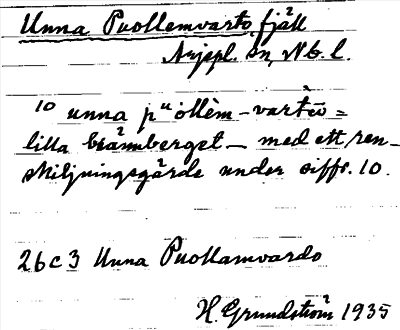 Unna Puollemvarto, fjäll
Arjepl. sn, Nb. l.
10 unna pᵘollēm-vartō =
lilla brännberget — med ett ren-
skiljningsgärde under siffr. 10.
26c3 Unna Puollamvardo
H. Grundström 1935